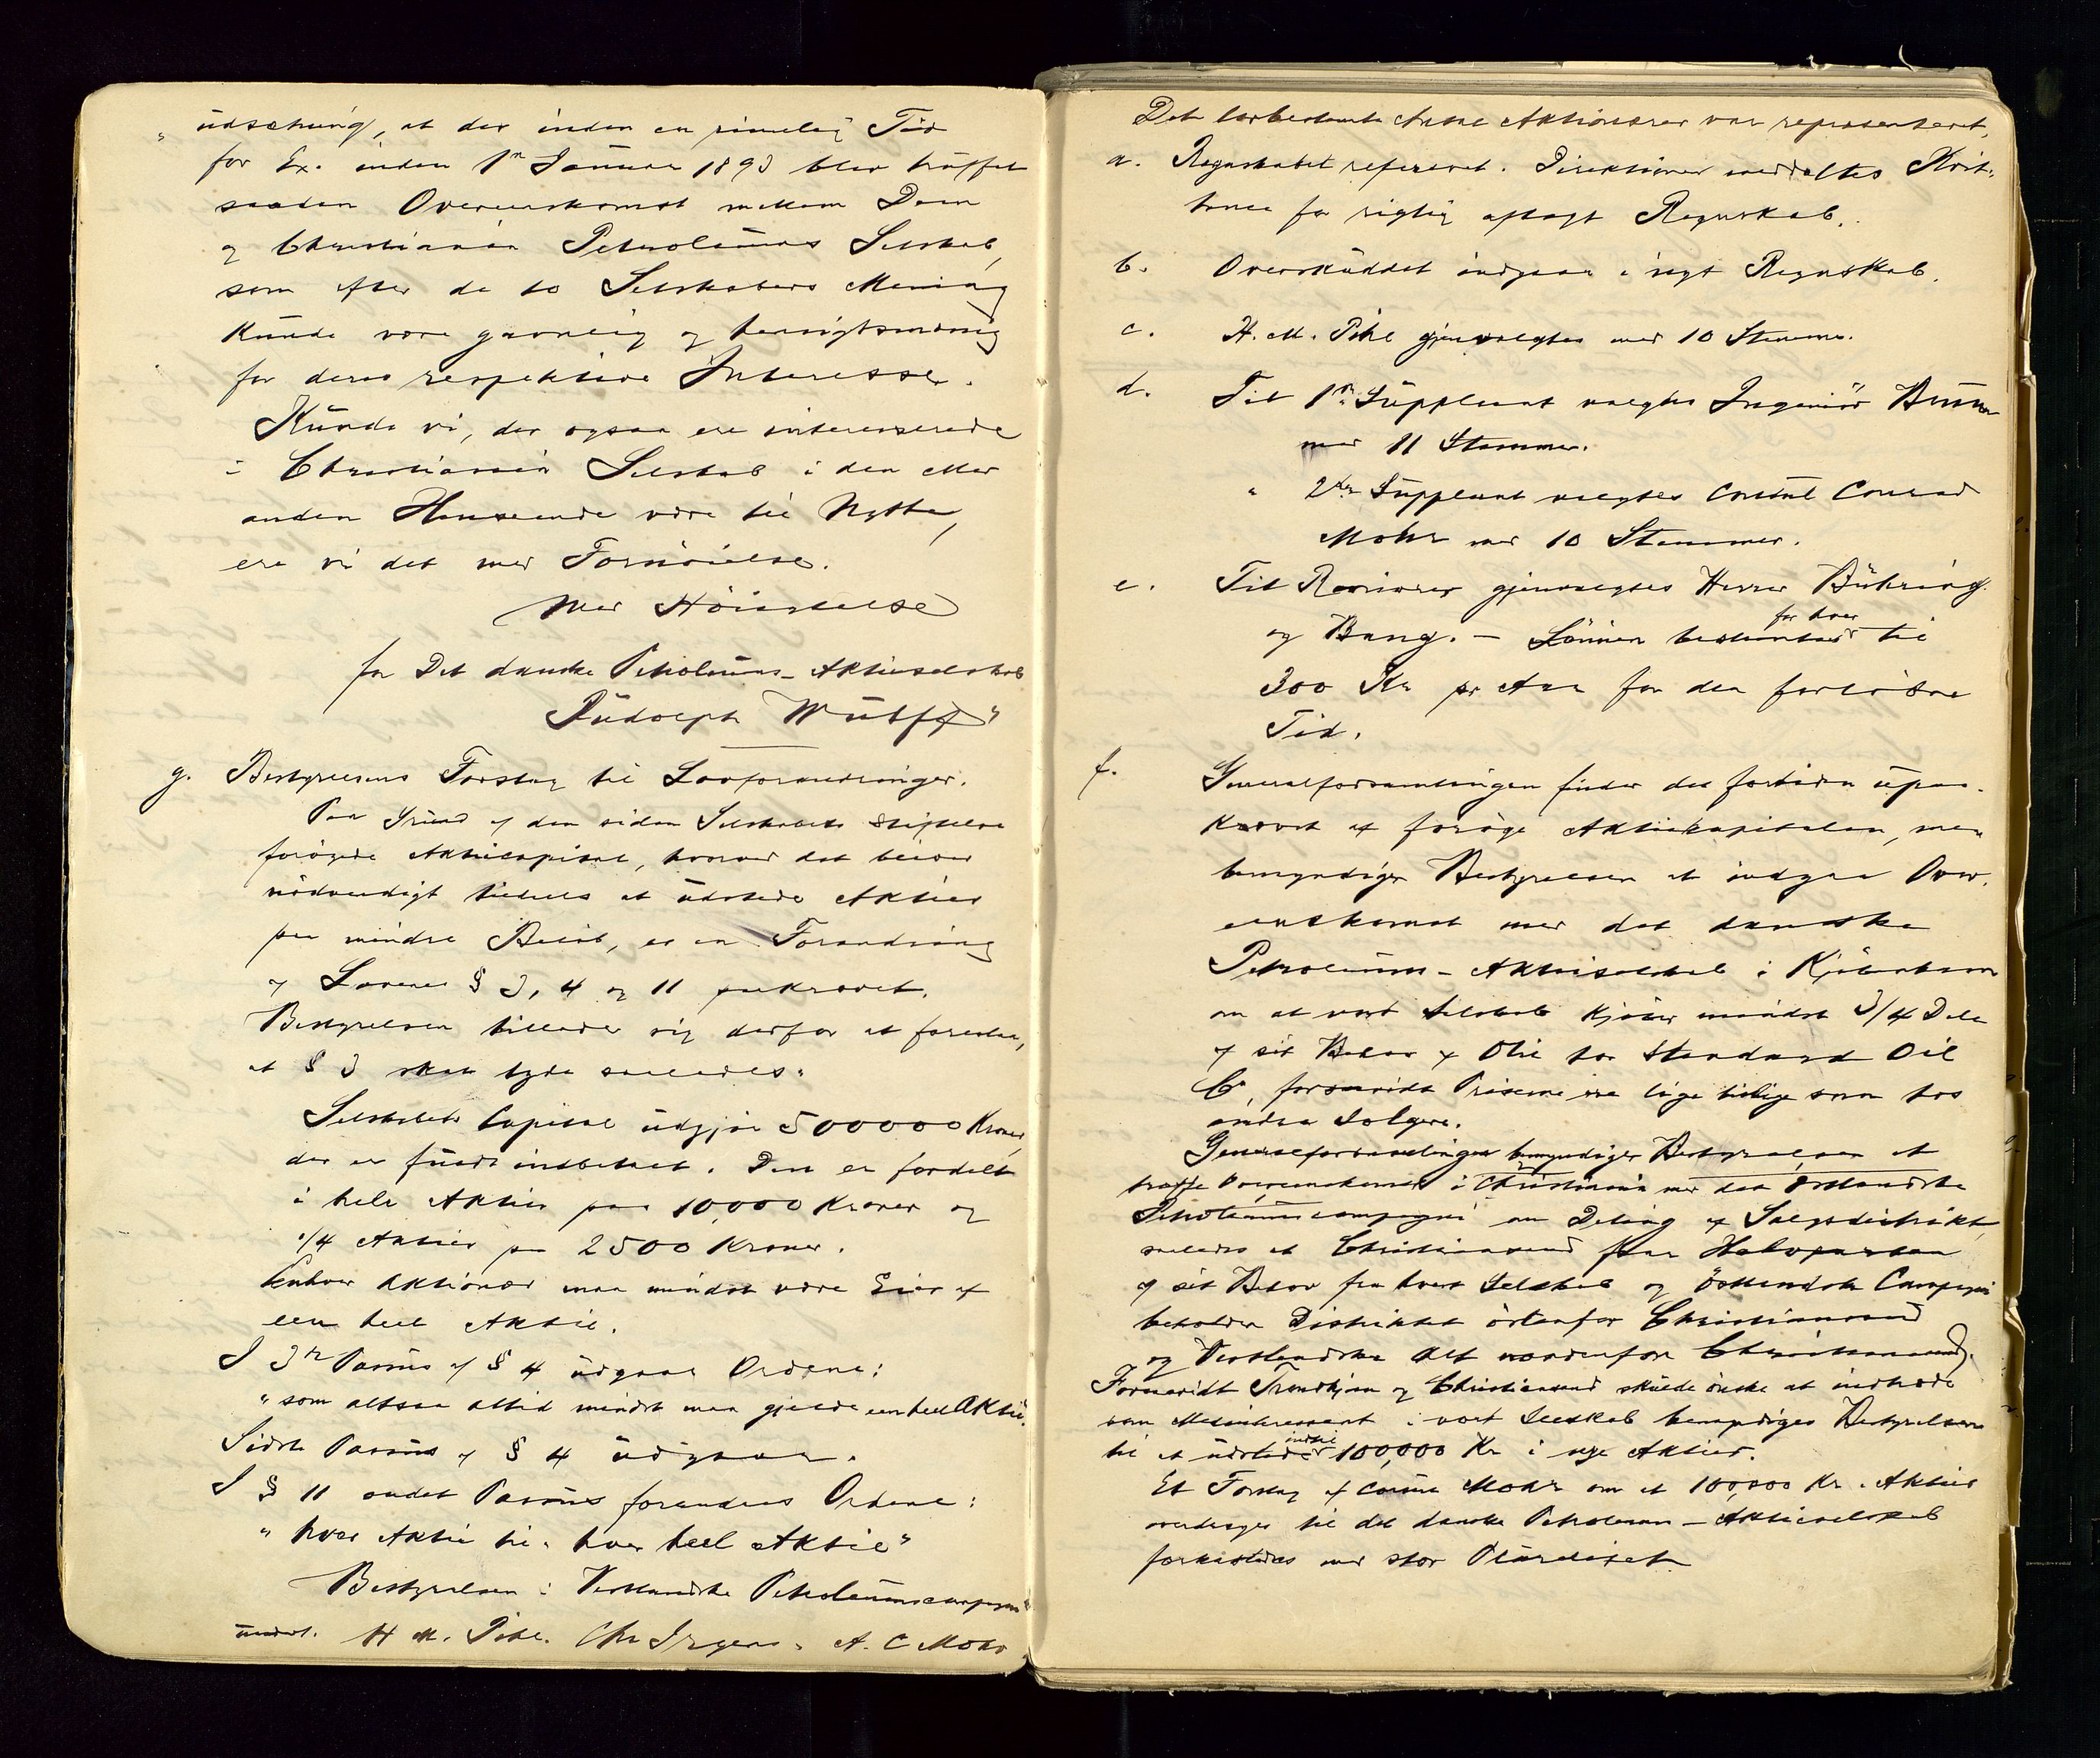 " udsætning, at der inden en rimelig Tid
for Ex. inden 1ste Januar 1893 blev truffet
saadan Overenskomst mellem Dem
og Christiania Petroleums Selskab,
som efter de to Selskabers Mening
kunde være gavnlig og hensigtsmæssig
for deres respektive Interesser.
Kunde vi, der ogsaa ere interesserede
i Christiania Selskab i den eller
anden Henseende være til Nytte,
ere vi det med Fornöielse.
Med Höiagtelse
for Det danske Petroleums-Aktieselskab
Rudolph Wulff"
g. Bestyrelsens Forslag til Lovforandringer.
Paa Grund af den siden Selskabets Stiftelse
forögede Aktiecapital, hvorved det bliver
nödvendigt tildels at udstede Aktier
paa mindre Belöb, er en Forandring
af Lovenes § 3, 4 og 11 paakrævet.
Bestyrelsen tillader sig derfor at foreslaa,
at § 3 skal lyde saaledes:
Selskabets Capital udgjör 500000 Kroner,
der er fuldt indbetalt. Den er fordelt
i hele Aktier paa 10,000 Kroner og
1/4 Aktier paa 2500 Kroner.
Enhver Aktionær maa mindst være Eier af
een heel Aktie.
I 3die Passus af § 4 udgaar Ordene:
"som altsaa altid mindst maa gjælde een heel Aktie."
Sidste Passus af § 4 udgaar.
I § 11 andet Passus forandres Ordene:
"hver Aktie til "hver heel Aktie"
Bestyrelsen i Vestlandske Petroleumscompagni"
undert. H M. Pihl. Chr Irgens. A. C Mohr
Det lovbestemte Antal Aktionærer var repræsenteret.
a. Regnskabet refereret. Direktionen meddeltes Kvit-
tance for rigtig aflagt Regnskab.
b. Overskuddet indgaar i nyt Regnskab.
c. H. M. Pihl gjenvalgtes med 10 Stemmer.
d. Til 1ste Suppleant valgtes Ingeniör
med 11 Stemmer.
" 2den Suppleant valgtes Consul Conrad
Mohr med 10 Stemmer.
e. Til Revisorer gjenvalgtes Herrer Bühring
og Bang. – Lönnen bestemtes for hver til
300 Kr pr Aar for den forlöbne
Tid.
f. Generalforsamlingen finder det fortiden upaa-
krævet at foröge Aktiekapitalen, men
bemyndiger Bestyrelsen at indgaa Over-
eenskomst med det danske
Petroleums-Aktieselskab i Kjöbenhavn
om at vort Selskab kjöber mindst 3/4 Dele
af sit Behov af Olie hos Standard Oil
Co, forsaavidt Priserne ere lige billige som hos
andre Sælgere.
Generalforsamlingen bemyndiger Bestyrelsen at
træffe Overenskomst i Christiania med det Östlandske
Petroleumscompagni om Deling af Salgsdistrikt,
saaledes at Christianssund faar Halvparten
af sit Behov fra hvert Selskab og Östlandske Compagni
beholder Distriktet östenfor Christianssund
og Vestlandske alt nordenfor Christianssund.
Forsaavidt Trondhjem og Christianssund skulde önske at indtræde
som Medinteressent i vort Selskab bemyndiges Bestyrelsen
til at udstede indtil 100,000 Kr i nye Aktier.
Et Forslag af Consul Mohr om at 100,000 Kr. Aktier
overdrages til det danske Petroleum-Aktieselskab
forkastedes med stor Pluralitet.